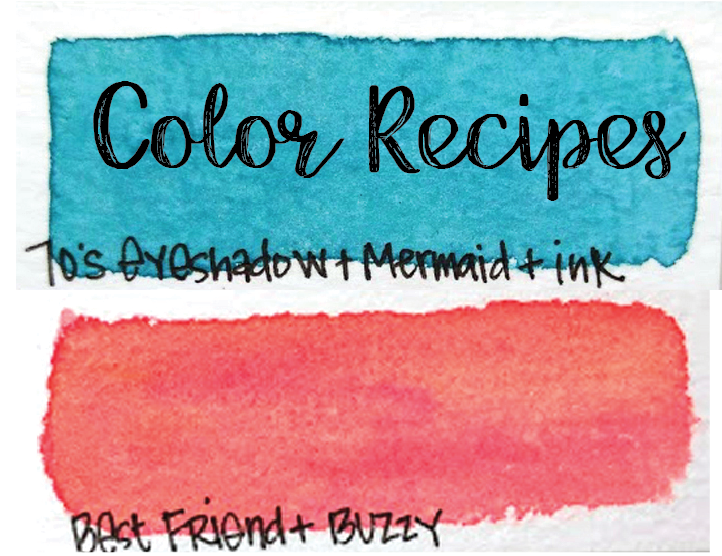 Color Recipes
70's eyeshadow + Mermaid + ink
Best Friend + Buzzy